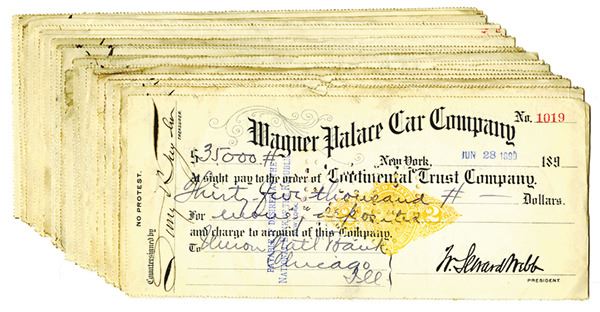 Wagner Palace Car Company
No. 1019
$35000#
New York, JUN 28 1899 189
At sight pay to the order of Continental Trust Company.
Thirty five thousand # — Dollars.
For money deposited
and charge to account of this Company.
To Union Natl Bank
Chicago
Ill
W. Seward Webb
PRESIDENT.
NO PROTEST.
Countersigned by
TREASURER
2